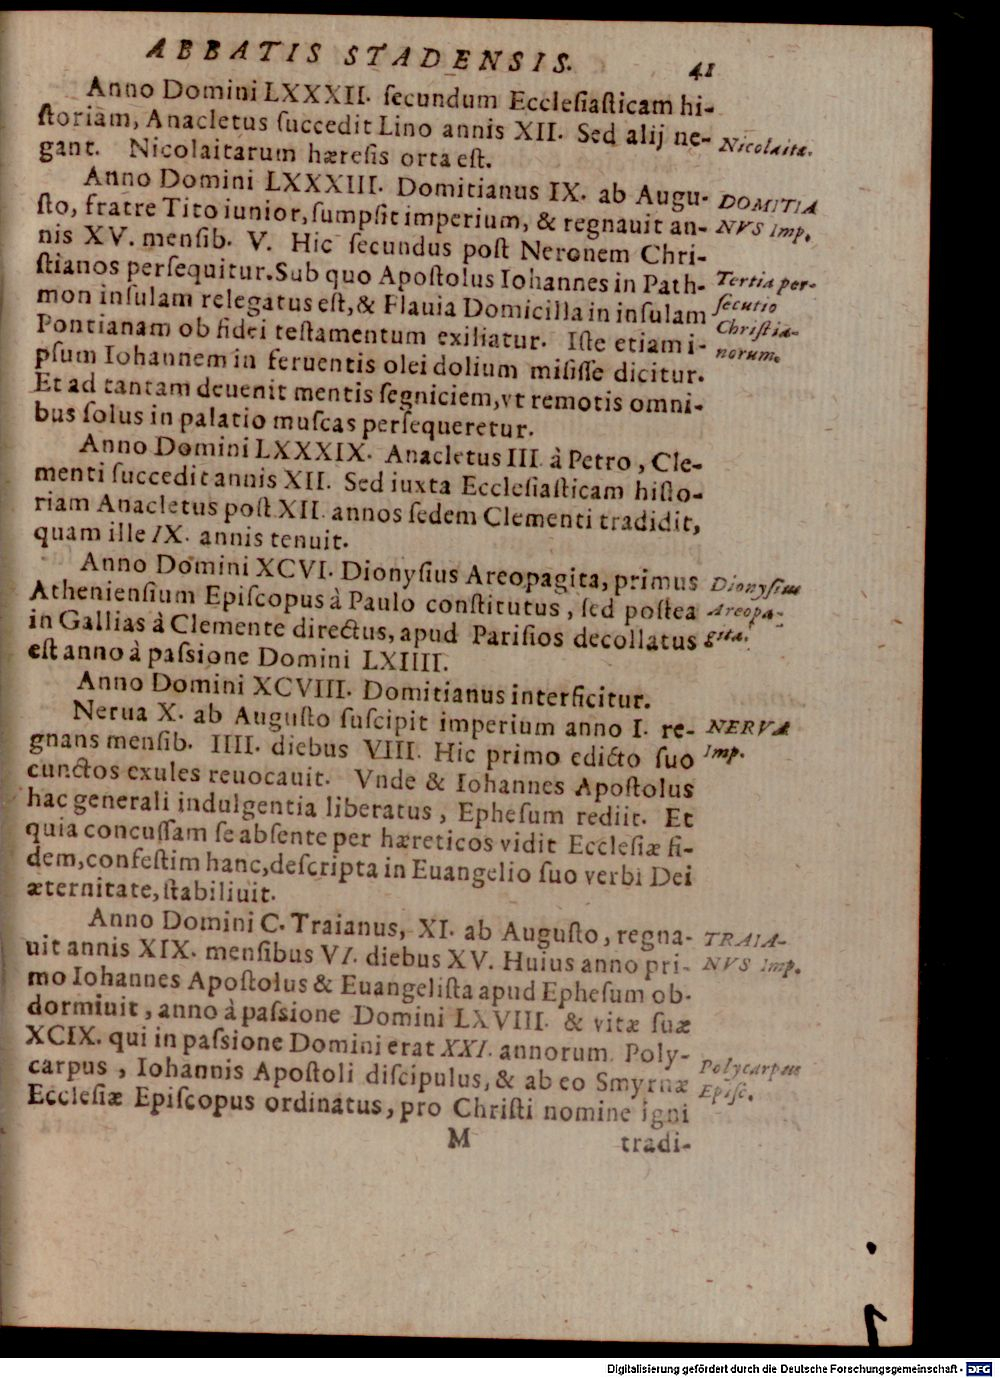 ABBATIS STADENSIS.
41
Anno Domini LXXXII. ſecundum Eccleſiaſticam hi-
ſtoriam, Anacletus ſuccedit Lino annis XII. Sed alij ne-
Nicolaitæ.
gant. Nicolaitarum hæreſis orta eſt.
Anno Domini LXXXIII. Domitianus IX. ab Augu-
DOMITIA
ſto, fratre Tito iunior, ſumpſit imperium, & regnauit an-
NVS Imp.
nis XV. menſib. V. Hic ſecundus poſt Neronem Chri-
ſtianos perſequitur. Sub quo Apoſtolus Iohannes in Path-
Tertia per-
mon inſulam relegatus eſt, & Flauia Domicilla in inſulam
ſecutio
Pontianam ob fidei teſtamentum exiliatur. Iſte etiam i-
Chriſtia-
pſum Iohannem in feruentis olei dolium miſiſſe dicitur.
norum.
Et ad tantam deuenit mentis ſegniciem, vt remotis omni-
bus ſolus in palatio muſcas perſequeretur.
Anno Domini LXXXIX. Anacletus III à Petro, Cle-
menti ſuccedit annis XII. Sed iuxta Eccleſiaſticam hiſto-
riam Anacletus poſt XII. annos ſedem Clementi tradidit,
quam ille IX. annis tenuit.
Anno Domini XCVI. Dionyſius Areopagita, primus
Dionyſius
Athenienſium Epiſcopus à Paulo conſtitutus, ſed poſtea
Areopa-
in Gallias à Clemente directus, apud Pariſios decollatus
gita.
eſt anno à paſsione Domini LXIIII.
Anno Domini XCVIII. Domitianus interficitur.
Nerua X. ab Auguſto ſuſcipit imperium anno I. re-
NERVA
gnans menſib. IIII. diebus VIII. Hic primo edicto ſuo
Imp.
cunctos exules reuocauit. Vnde & Iohannes Apoſtolus
hac generali indulgentia liberatus, Epheſum rediit. Et
quia concuſſam ſe abſente per hæreticos vidit Eccleſiæ fi-
dem, confeſtim hanc, deſcripta in Euangelio ſuo verbi Dei
æternitate, ſtabiliuit.
Anno Domini C. Traianus, XI. ab Auguſto, regna-
TRAIA-
uit annis XIX. menſibus VI. diebus XV. Huius anno pri-
NVS Imp.
mo Iohannes Apoſtolus & Euangeliſta apud Epheſum ob-
dormiuit, anno à paſsione Domini LXVIII. & vitæ ſuæ
XCIX. qui in paſsione Domini erat XXI. annorum. Poly-
Polycarpus
carpus, Iohannis Apoſtoli diſcipulus, & ab eo Smyrnæ
Epiſc.
Eccleſiæ Epiſcopus ordinatus, pro Chriſti nomine igni
M
tradi-
Digitalisierung gefördert durch die Deutsche Forschungsgemeinschaft - DFG